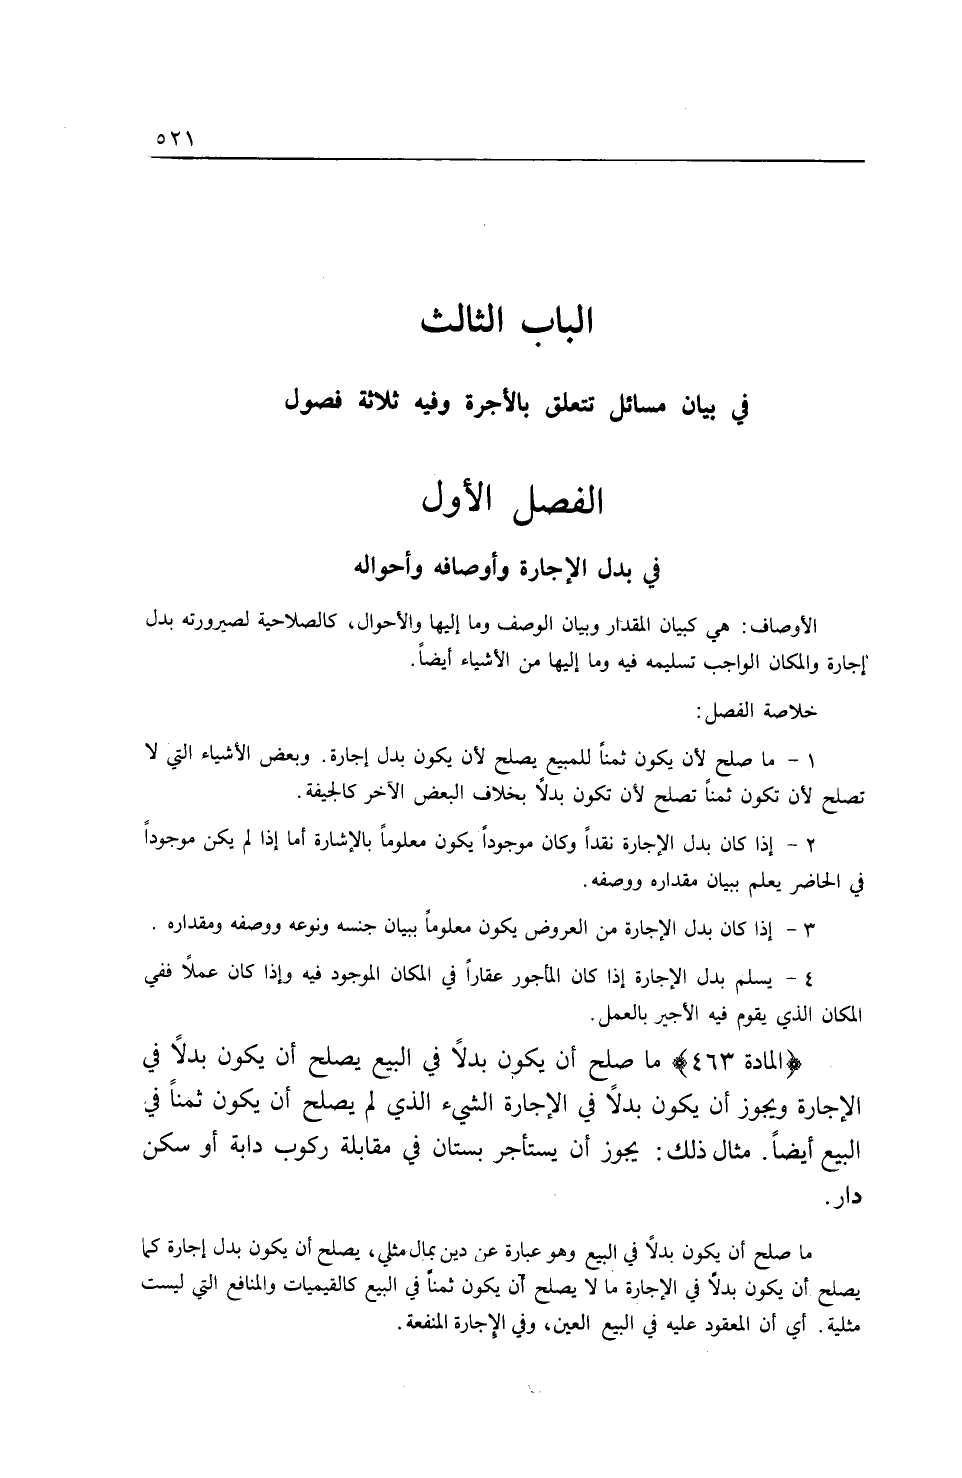 ٥٢١
الباب الثالث
في بيان مسائل تتعلق بالأجرة وفيه ثلاثة فصول
الفصل الأول
في بدل الإجارة وأوصافه وأحواله
الأوصاف: هي كبيان المقدار وبيان الوصف وما إليها والأحوال، كالصلاحية لصيرورته بدل
إجارة والمكان الواجب تسليمه فيه وما إليها من الأشياء أيضاً.
خلاصة الفصل:
١ - ما صلح لأن يكون ثمناً للمبيع يصلح لأن يكون بدل إجارة. وبعض الأشياء التي لا
تصلح لأن تكون ثمناً تصلح لأن تكون بدلاً بخلاف البعض الآخر كالجيفة.
٢ - إذا كان بدل الإجارة نقداً وكان موجوداً يكون معلوماً بالإشارة أما إذا لم يكن موجوداً
في الحاضر يعلم ببيان مقداره ووصفه.
٣ - إذا كان بدل الإجارة من العروض يكون معلوماً ببيان جنسه ونوعه ووصفه ومقداره .
٤ - يسلم بدل الإجارة إذا كان المأجور عقاراً في المكان الموجود فيه وإذا كان عملاً ففي
المكان الذي يقوم فيه الأجير بالعمل.
﴿المادة ٤٦٣﴾ ما صلح أن يكون بدلاً في البيع يصلح أن يكون بدلاً في
الإجارة ويجوز أن يكون بدلاً في الإجارة الشيء الذي لم يصلح أن يكون ثمناً في
البيع أيضاً. مثال ذلك: يجوز أن يستأجر بستان في مقابلة ركوب دابة أو سكن
دار.
ما صلح أن يكون بدلاً في البيع وهو عبارة عن دين بمال مثلي، يصلح أن يكون بدل إجارة كما
يصلح أن يكون بدلاً في الإجارة ما لا يصلح أن يكون ثمناً في البيع كالقيميات والمنافع التي ليست
مثلية. أي أن المعقود عليه في البيع العين، وفي الإجارة المنفعة.